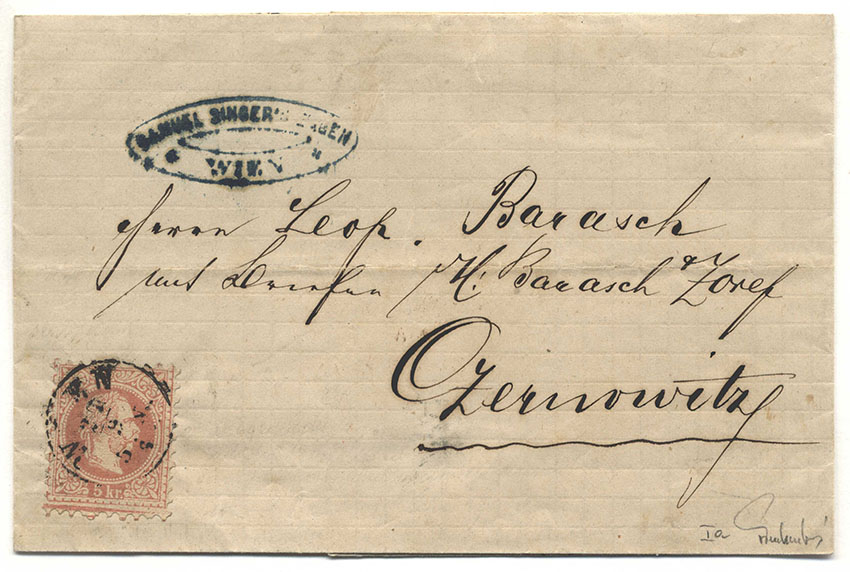 SAMUEL SINGER'S ERBEN
WIEN
Herrn Leop. Barasch
mit Briefen M: Barasch & Zoref
Czernowitz
5 kr.
Ia